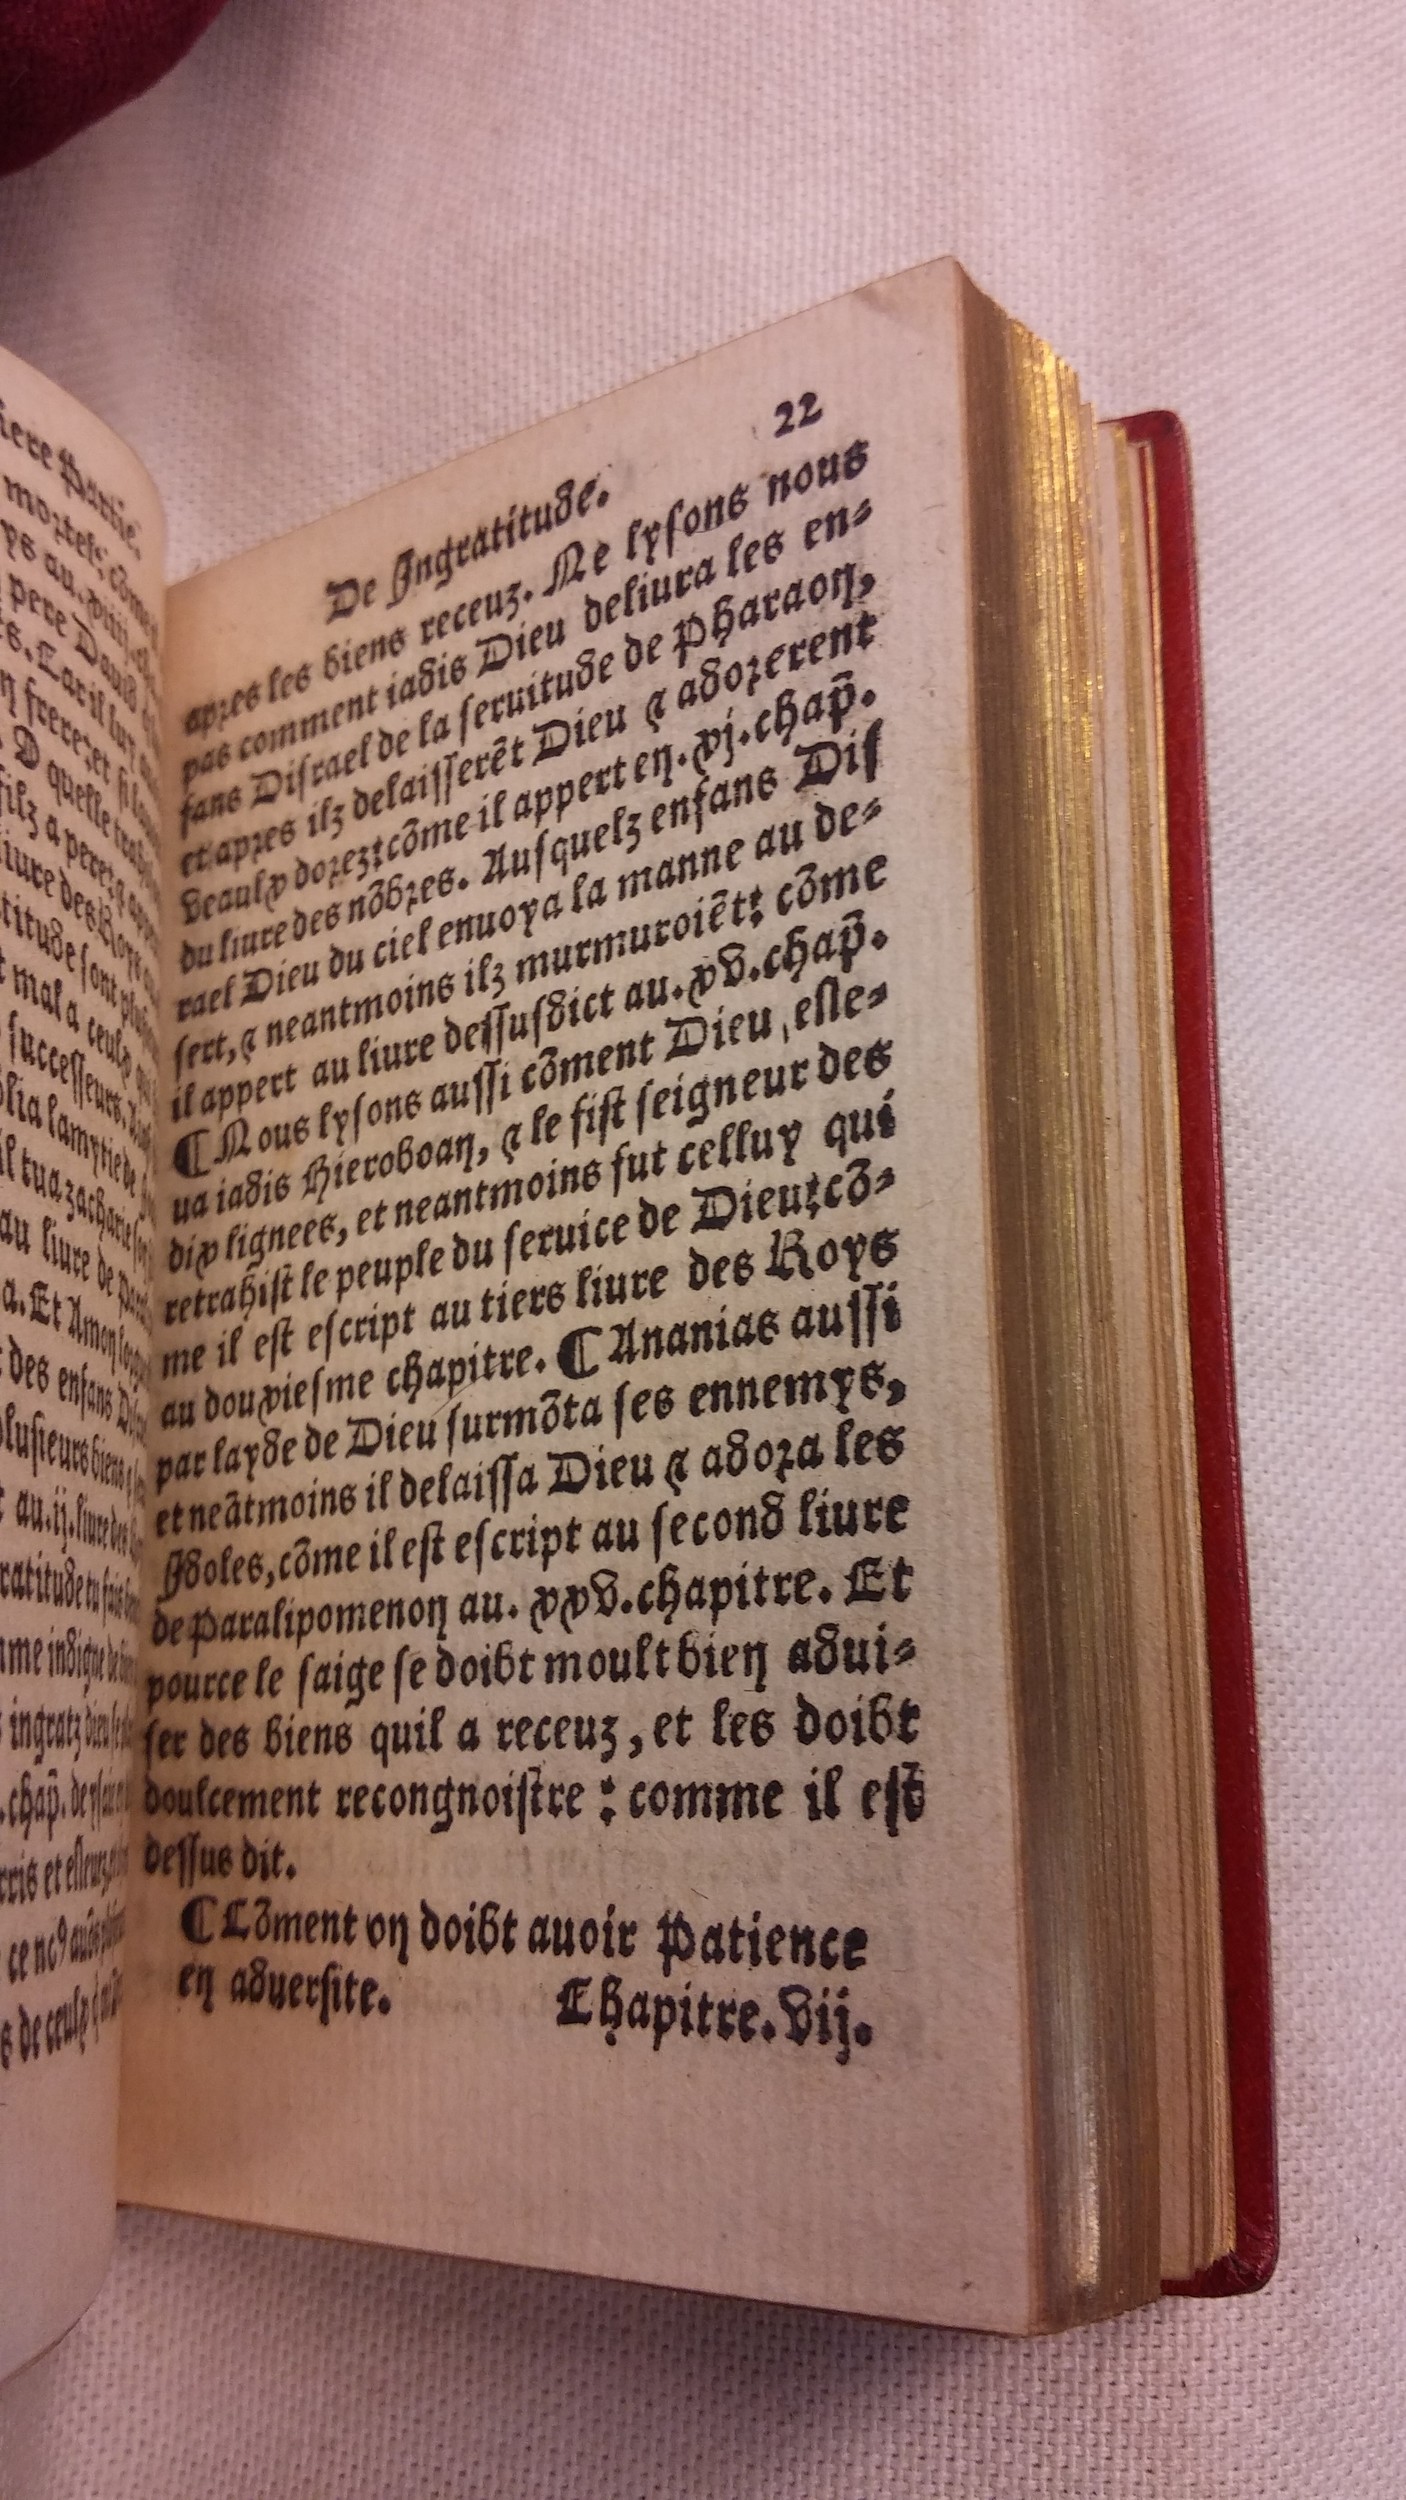 iere Partie.
mortelz cõme
ys au. xviij.
pere David
s. Car il luy
n frere: et si
D quelle
filz a pere
liure des Roys
titude sont
mal a ceulx
successeurs.
lia lamytie de
il tua zacharie
au liure de
a. Et Amon
des enfans
plusieurs biens
au. ij. liure des
ratitude tu
me indigne de
ingratz dieu
chap̃. de
ris et esleuez
ce nꝰ
s de ceulx
22
De Ingratitude.
apꝛes les biens receuz. Ne lysons nous
pas comment iadis Dieu deliura les en-
fans Disrael de la seruitude de Pharaon,
et apꝛes ilz delaisserẽt Dieu & adoꝛerent
veaulx doꝛez: cõme il appert en. xj. chap̃.
du liure des nõbꝛes. Ausquelz enfans Dis
rael Dieu du ciel enuoya la manne au de-
sert, & neantmoins ilz murmuroiẽt: cõme
il appert au liure dessusdict au. xv. chap̃.
¶ Nous lysons aussi cõment Dieu, esle-
ua iadis Hieroboan, & le fist seigneur des
dix lignees, et neantmoins fut celluy qui
retrahist le peuple du seruice de Dieu: cõ-
me il est escript au tiers liure des Roys
au douxiesme chapitre. ¶ Ananias aussi
par layde de Dieu surmõta ses ennemys,
et neãtmoins il delaissa Dieu & adoꝛa les
Idoles, cõme il est escript au second liure
de Paralipomenon au. xxv. chapitre. Et
pource le saige se doibt moult bien adui-
ser des biens quil a receuz, et les doibt
doulcement recongnoistre : comme il est
dessus dit.
¶ Cõment on doibt auoir Patience
en aduersite. Chapitre. vij.